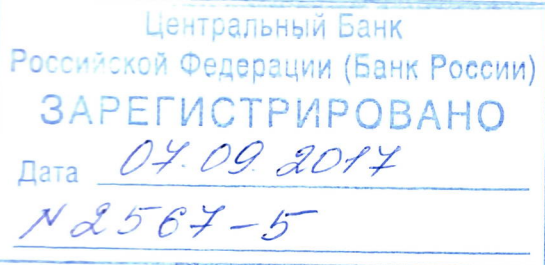 Центральный Банк
Российской Федерации (Банк России)
ЗАРЕГИСТРИРОВАНО
Дата 07.09.2017
№ 2567-5